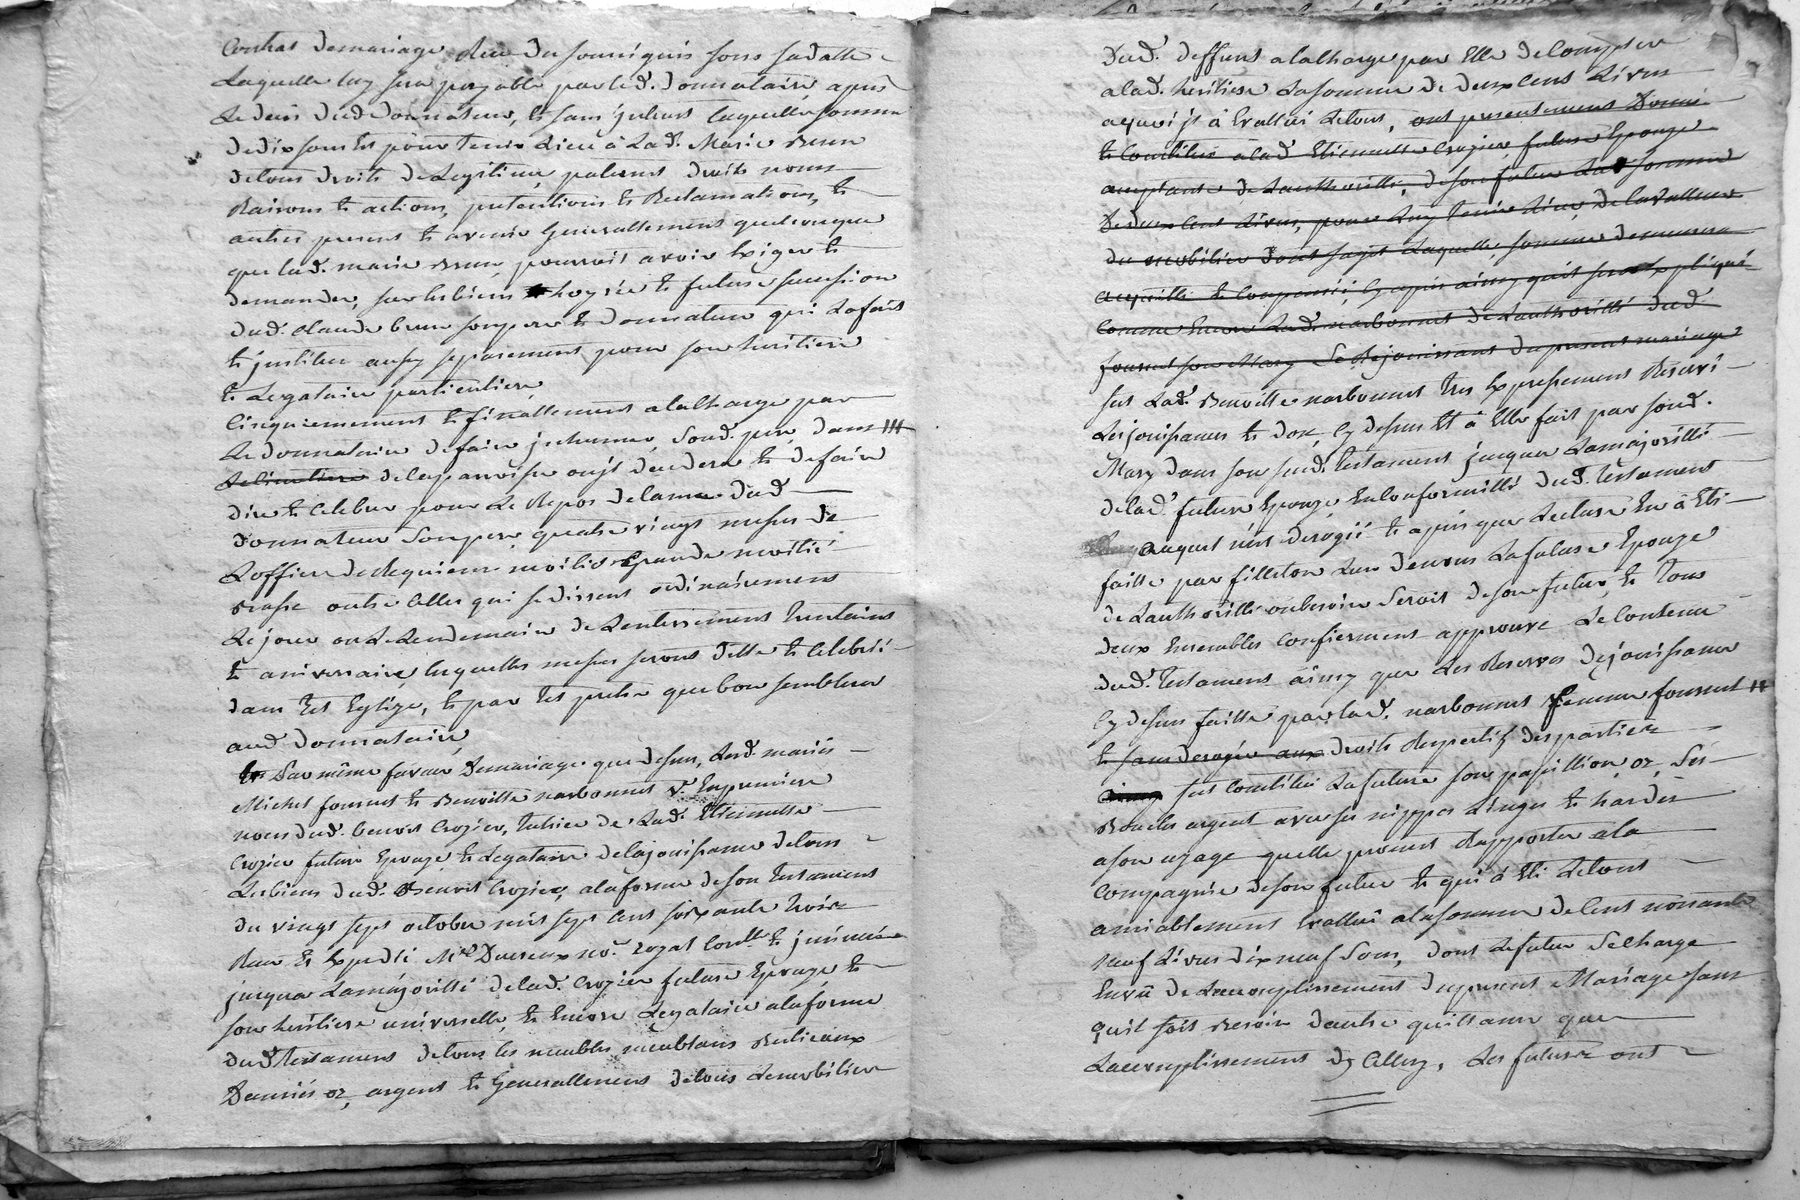 Contrat demariage Receu du sousigné sous sadatte
Laquelle luy sera payable par led. donnataire apres
Le deces dud. donnateur, et sans interest laquelle somme
de dix sous est pour tenir Lieu à Lad. Marie Brun
de tous droits de Legitime paternels droits noms
Raisons et actions, pretentions et Reclamations, et
autres present et avenir Generallement quelconque
que lad. marie Brun pourroit avoir exiger et
demander, sur les biens hoyrie et future sucession
dud. claude brun son pere et donnateur qui La fait
et justitue aussy separement pour son heritiere
et Legataire particuliere
Cinquiemement et finallement alacharge par
Le donnataire de faire inhumer Sond. pere dans
de laparroisse de faire
dire et Celebrer pour Le Repos de lame dud.
donnateur Son pere quatre vingt messes de
Loffice de Requiem moitié grande moitié
basse outre Celles qui se dissent ordinairement
Le jour ou Le Lendemain de Lenterrement trentaine
et aniversaire, lesquelles messes seront ditte et Celebré
dans tel Eglize, et par tel pretre que bon semblera
aud. donnataire
Par même faveur demariage que dessus, Lesd. mariés
Michel fournet et Benoitte narbonnet V.e En premiere
noces dud. benoit Crozier, tutrice de Lad. Etiennette
Crozier future Epouze et Legataire de lajouissance de tous
Les biens dud. Benoit Crozier, alaforme de son testament
du vingt sept octobre mil sept cent soixante trois
Receu et Expedié M.e Ducreux no.re royal Con.lle et juiné
jusqua Lamajorité de lad. Crozier future Epouze et
son heritiere universelle, et Encore Legataire alaforme
dud. testament de tous les meubles meublants Bestieaux
Danrés or, argent et Generallement de tous Le mobilier
Dud. deffunt alacharge par Elle de Compter
alad. heritiere Lasomme de deux Cens Livres
aquoi jl à Evallué Letout, ont presentement Donné
et Constitué alad. Etiennette Crozier future Epouze
acceptante de Lauthorité, de son futur Lad. somme
De deux Cent Livres, pour Luy tenir Lieu de lavalleur
du mobilier dont sagit Laquelle somme demeurera
acquitté et Compensée Cy apres ainsy quil sera Expliqué
Comme Encore Lad. narbonnet de Lauthorité dud.
fournet son Mary Se Rejouissant du present mariage
fut Lad. Benoitte narbonnet tres Expressement Reservé
Les jouissances et don, Cy dessus Et à Elle fait par sond.
Mary dans son sud. testament jusqua Lamajorité
de lad. future Epouze, En Conformité dud. testament
auquel nest derogé et apres que Lecture En à Eté
faitte par filleton Lun deuons Lafuture Epouze
de Lauthorité ou besoin Seroit de son futur, et tous
deux Ensembles Confirment approuve Le Contenu
dud. testament ainsy que Les Reserves de jouissance
Cy dessus faitte par lad. narbonnet femme fournet
et sans deroger aux droits Respectifs des parties
fut Constitué Lafuture son papillion or, Ses
Boucles argent avec ses nippes Linges et hardes
ason uzage quelle promet Rapporter ala
Compagnie de son futur et qui à Eté Letout
amiablement Evallué alasomme de Cent nonante
neuf Livres dix neuf Sous, dont Lefutur Se Charge
En vü de Laccomplissement du present Mariage sans
quil soit Besoin dautre quittance que
Laccomplissement dy Celluy. Les futurs ont